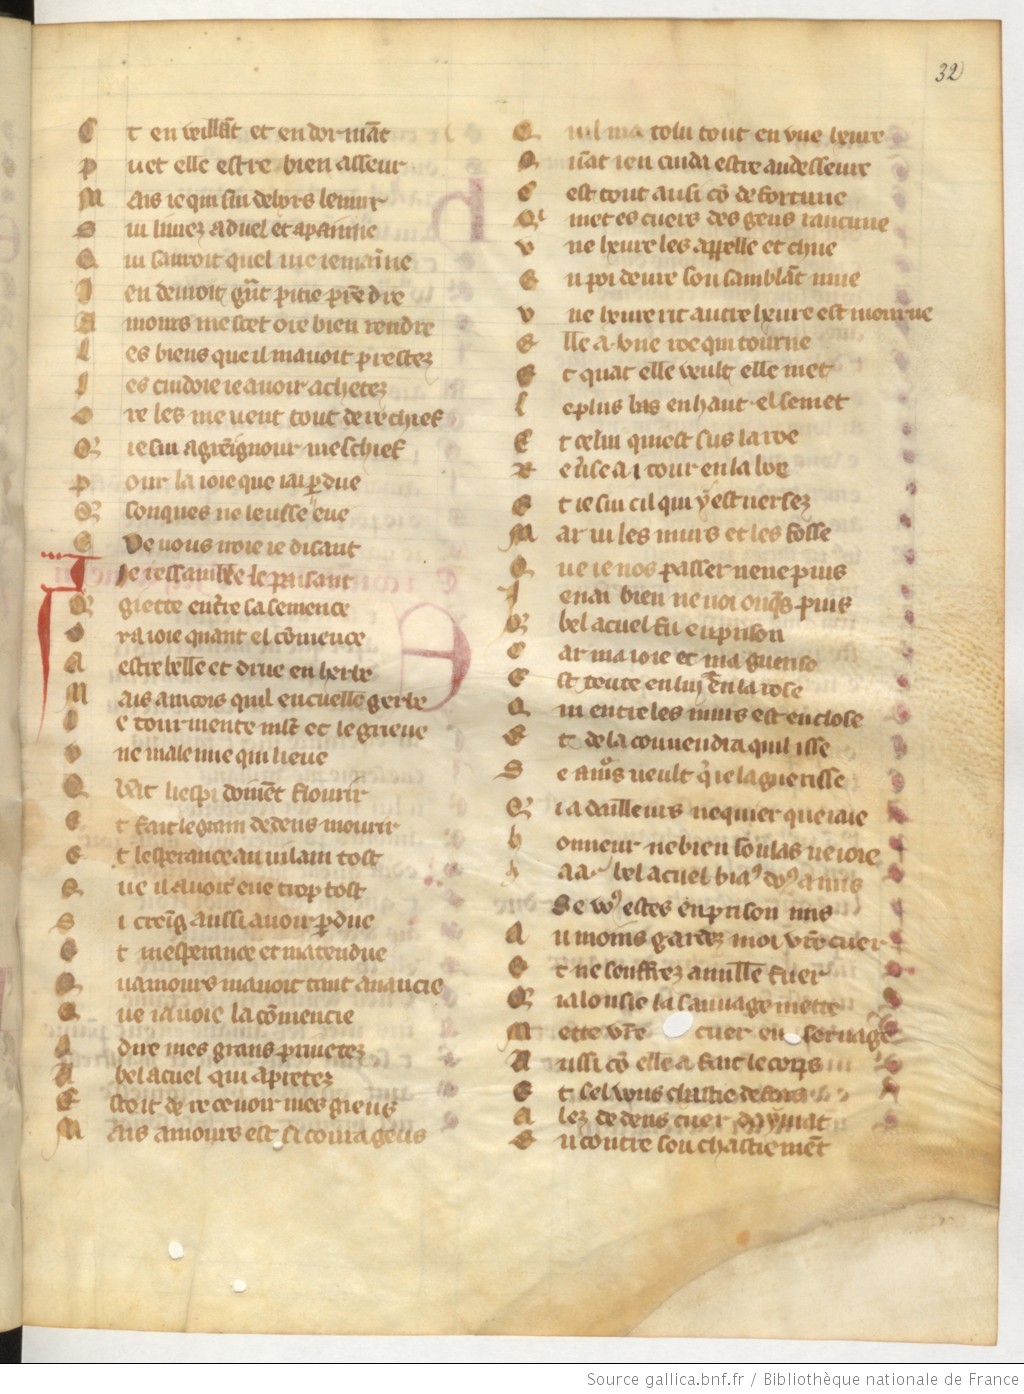 32
E t en veillāt et en dormāt
P uet elle estre bien asseur
M ais ie qui sui dehors le mur
S ui livrez a duel et a painne
Q ui sauroit quel vie ie mainne
I en devroit grāt pitie prēdre
A mours me scet ore bien vendre
L es biens que il mauoit prestez
I es cuidoie ie auoir achetez
O re les me uent tout de rechief
Q ie sui a greignour meschief
P our la ioie que iai pdue
Q sonques ne leusse eue
Q ue uous iroie ie disant
Je ressamble le paisant
Q giette en tre sa semence
O ra ioie quant el cōmence
A estre belle et drue en herbe
M ais aincois quil en cuelle gerbe
L e tourmente mlt et le grieue
U ne male nue qui lieue
Q uāt li espi doiuēt flourir
E t fait le grain dedens mourir
E t lesperance au vilain tost
Q ue il auoit eue trop tost
S i creīg aussi auoir pdue
E t mesperance et matendue
Q uamours mauoit tant auancie
Q ue iauoie la cōmencie
A dire mes grans priuetez
A bel acuel qui aprestez
E stoit de receuoir mes gieus
M ais amours est si courageus
Q uil ma tolu tout en vne heure
Q uāt ieu cuida estre audesseure
C est tout ausi cō de fortune
Q met es cuers des gens rancune
U ne heure les appelle et chue
E n poi deure son samblāt mue
U ne heure rit autre heure est mourne
E lle a vne roe qui tourne
E t quāt elle veult elle met
L e plus bas en haut el semet
E t celui qui est sus la roe
R enuerse a i tour en la boe
E t ie sui cil qui y est uersez
M ar vi les murs et les fosse
Q ue ie nos passer ne ne puis
J e nai bien ne ioi onqs puis
Q bel acuel fu en prison
C ar ma ioie et ma guerison
E st toute en lui et en la rose
Q ui entre les murs est enclose
E t de la conuendra quil isse
S e amōs ueult q ie la guerisse
Q ia dailleurs ne quier que iaie
H onneur ne bien soulas ne ioie
H aa bel acuel biaus dous amis
Se vos estes en prison mis
A u moins gardez moi vrē cuer
E t ne souffrez a nulle fuer
Q ia lousie la sauuage mette
M ette vrē cuer en seruage
A ussi cō elle a fait le corps
E t sel vous chastie dehors
A iez dedens cuer daymāt
E n contre son chastiemēt
Source gallica.bnf.fr / Bibliothèque nationale de France